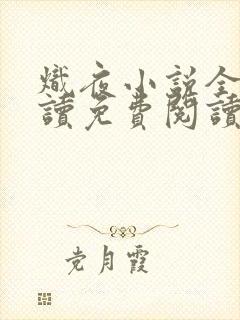 熾夜小説全
讀免費閱讀
党月霞